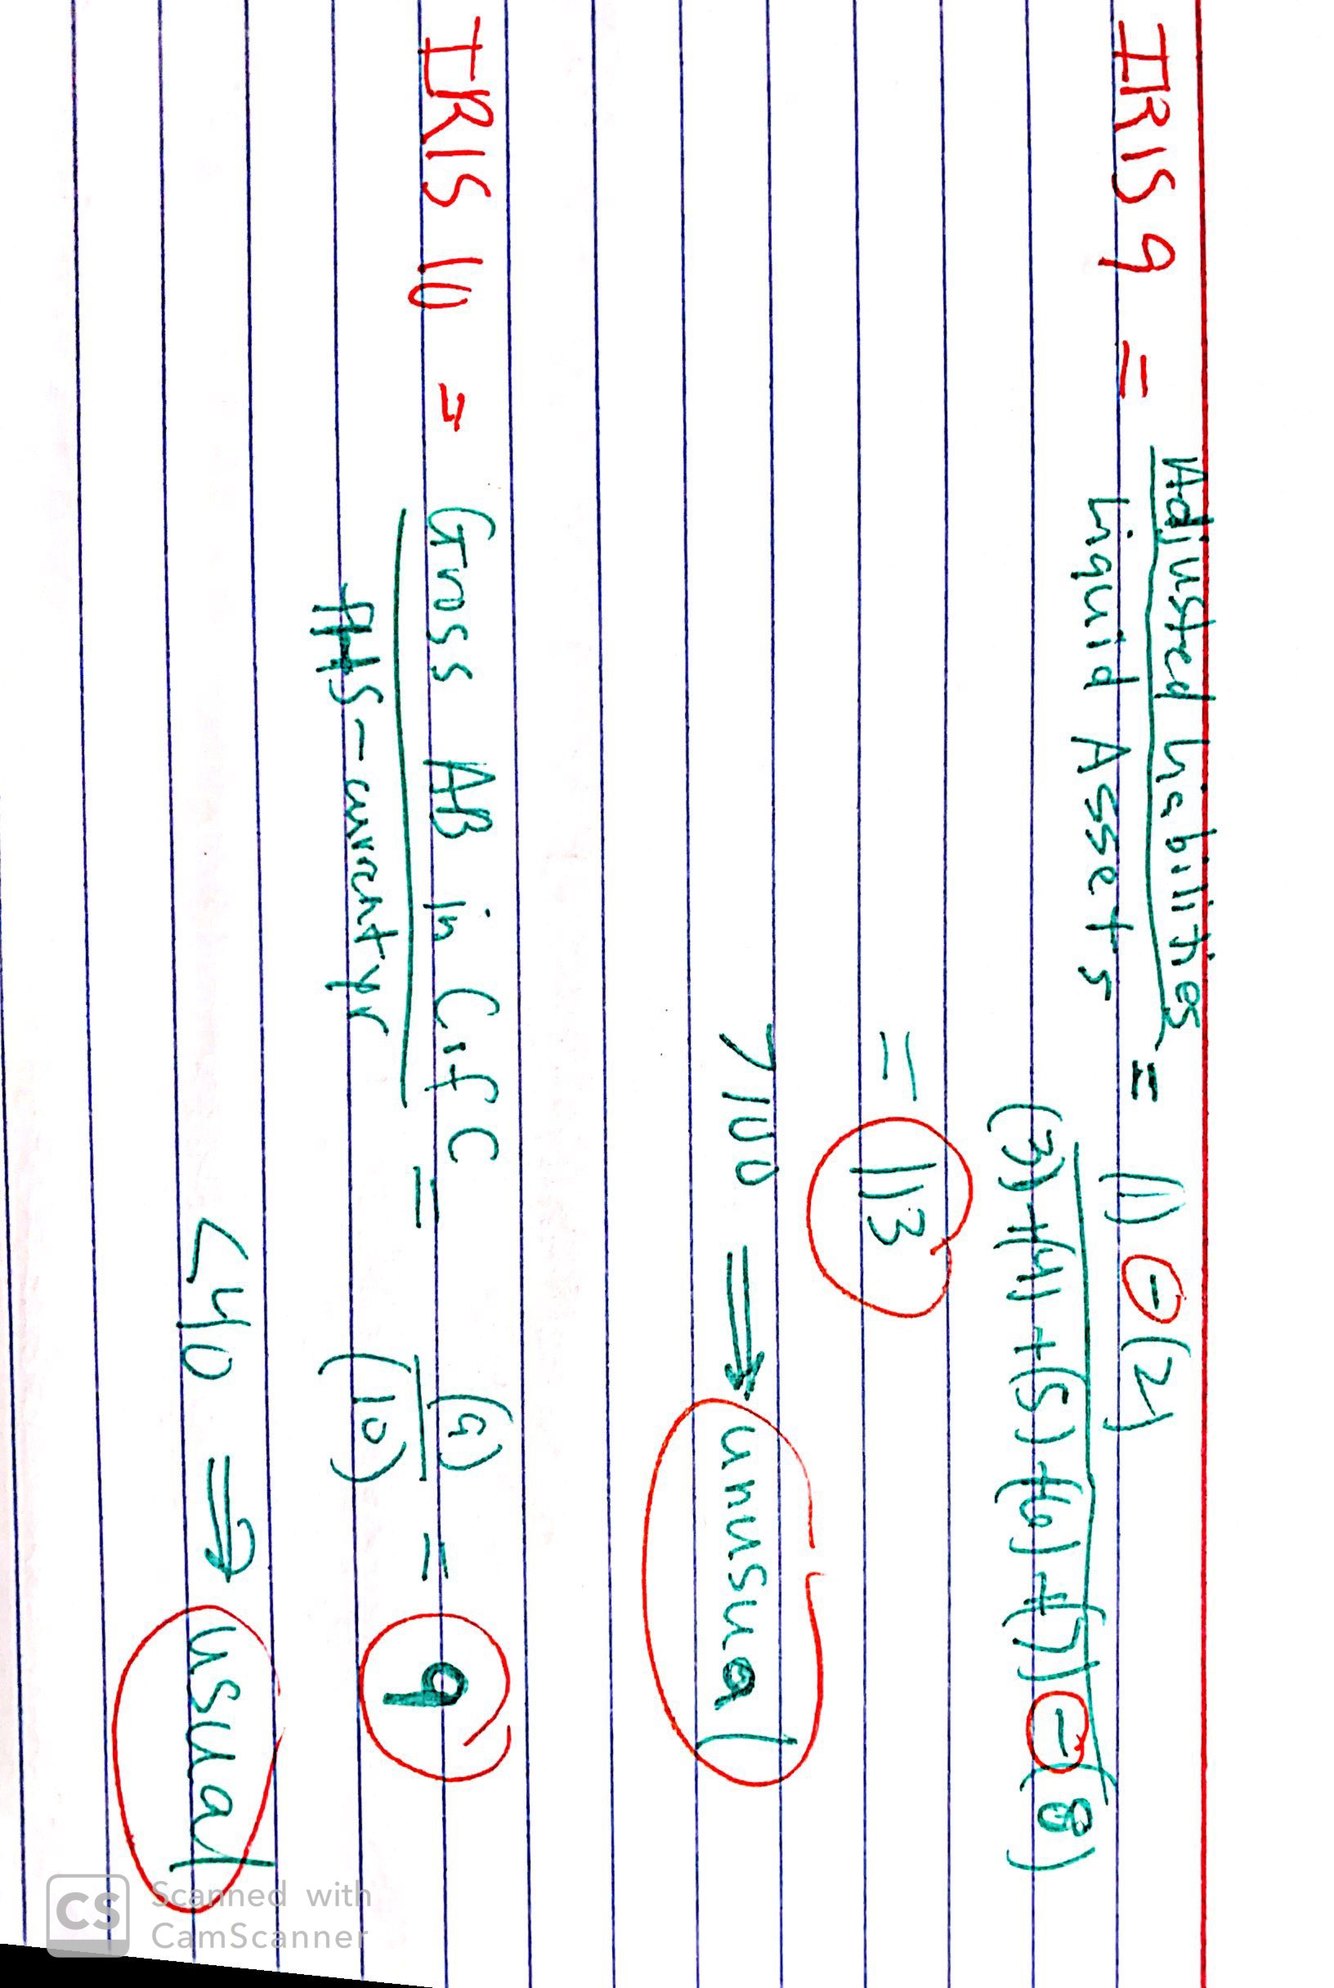 IRIS 9 = Adjusted Liabilities = (1) - (2)
Liquid Assets (3)+(4)+(5)+(6)+(7)-(8)
= 113
>100 ⟹ unusual
IRIS 10 = Gross AB in C of C = (9) = 9
PHS-current yr (10)
<40 ⟹ usual
CS Scanned with
CamScanner